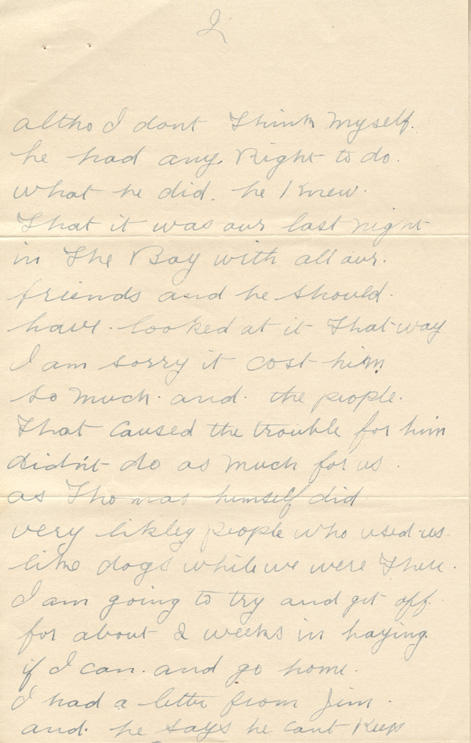 2
altho I dont think myself.
he had any. Right to do.
what he did. he Knew.
That it was our last night
in The Bay with all our.
friends and he should.
have. looked at it That way
I am sorry it cost him
so much. and. the people.
That caused the trouble for him
didn't do as much for us.
as Thomas himself did
very likley people who used us.
like dogs while we were There.
I am going to try and get off.
for about 2 weeks in haying
if I can. and go home.
I had a letter from Jim.
and. he says he cant Keep